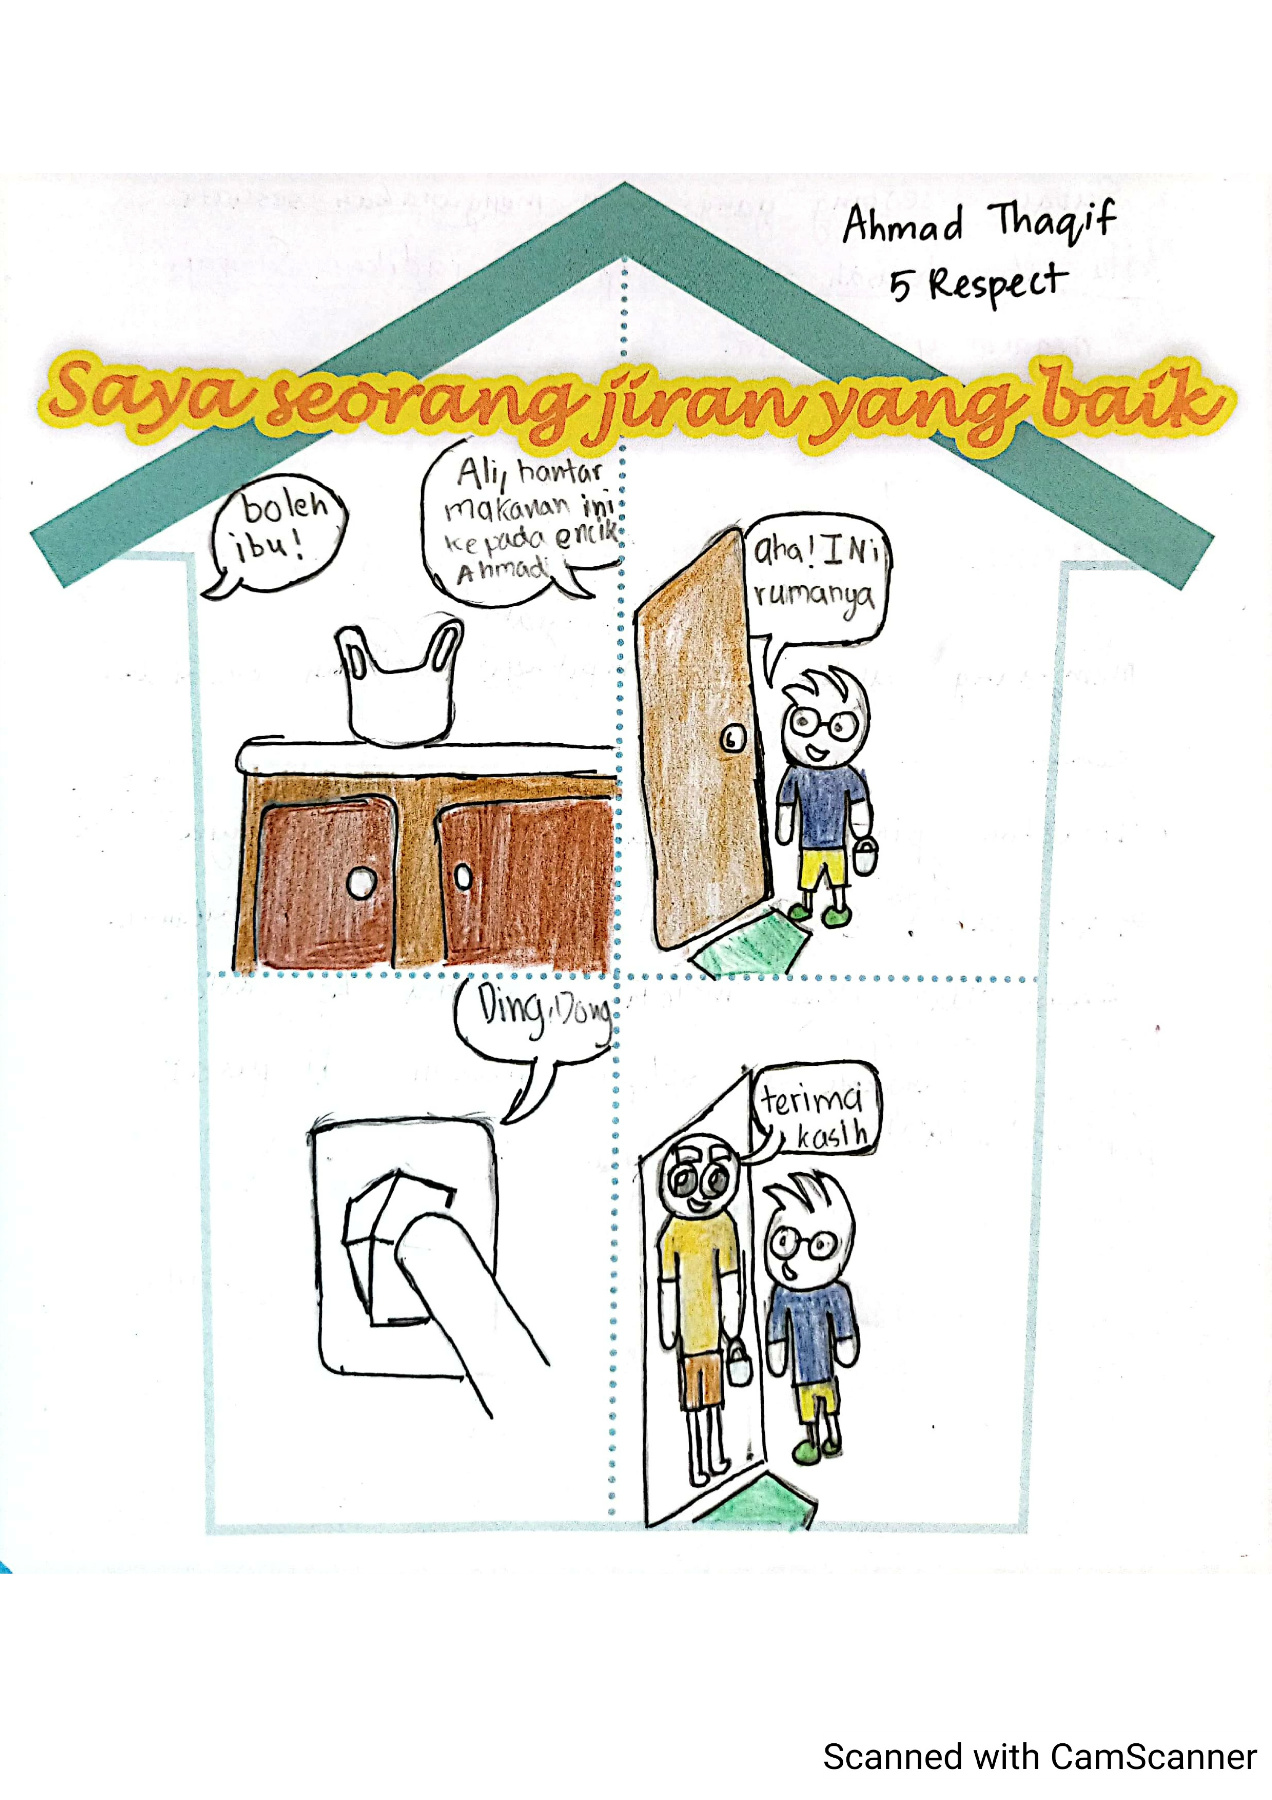 Ahmad Thaqif
5 Respect
Saya seorang jiran yang baik
boleh
ibu!
Ali, hantar
makanan ini
kepada encik
Ahmad
aha! INi
rumanya
Ding, Dong
terima
kasih
Scanned with CamScanner